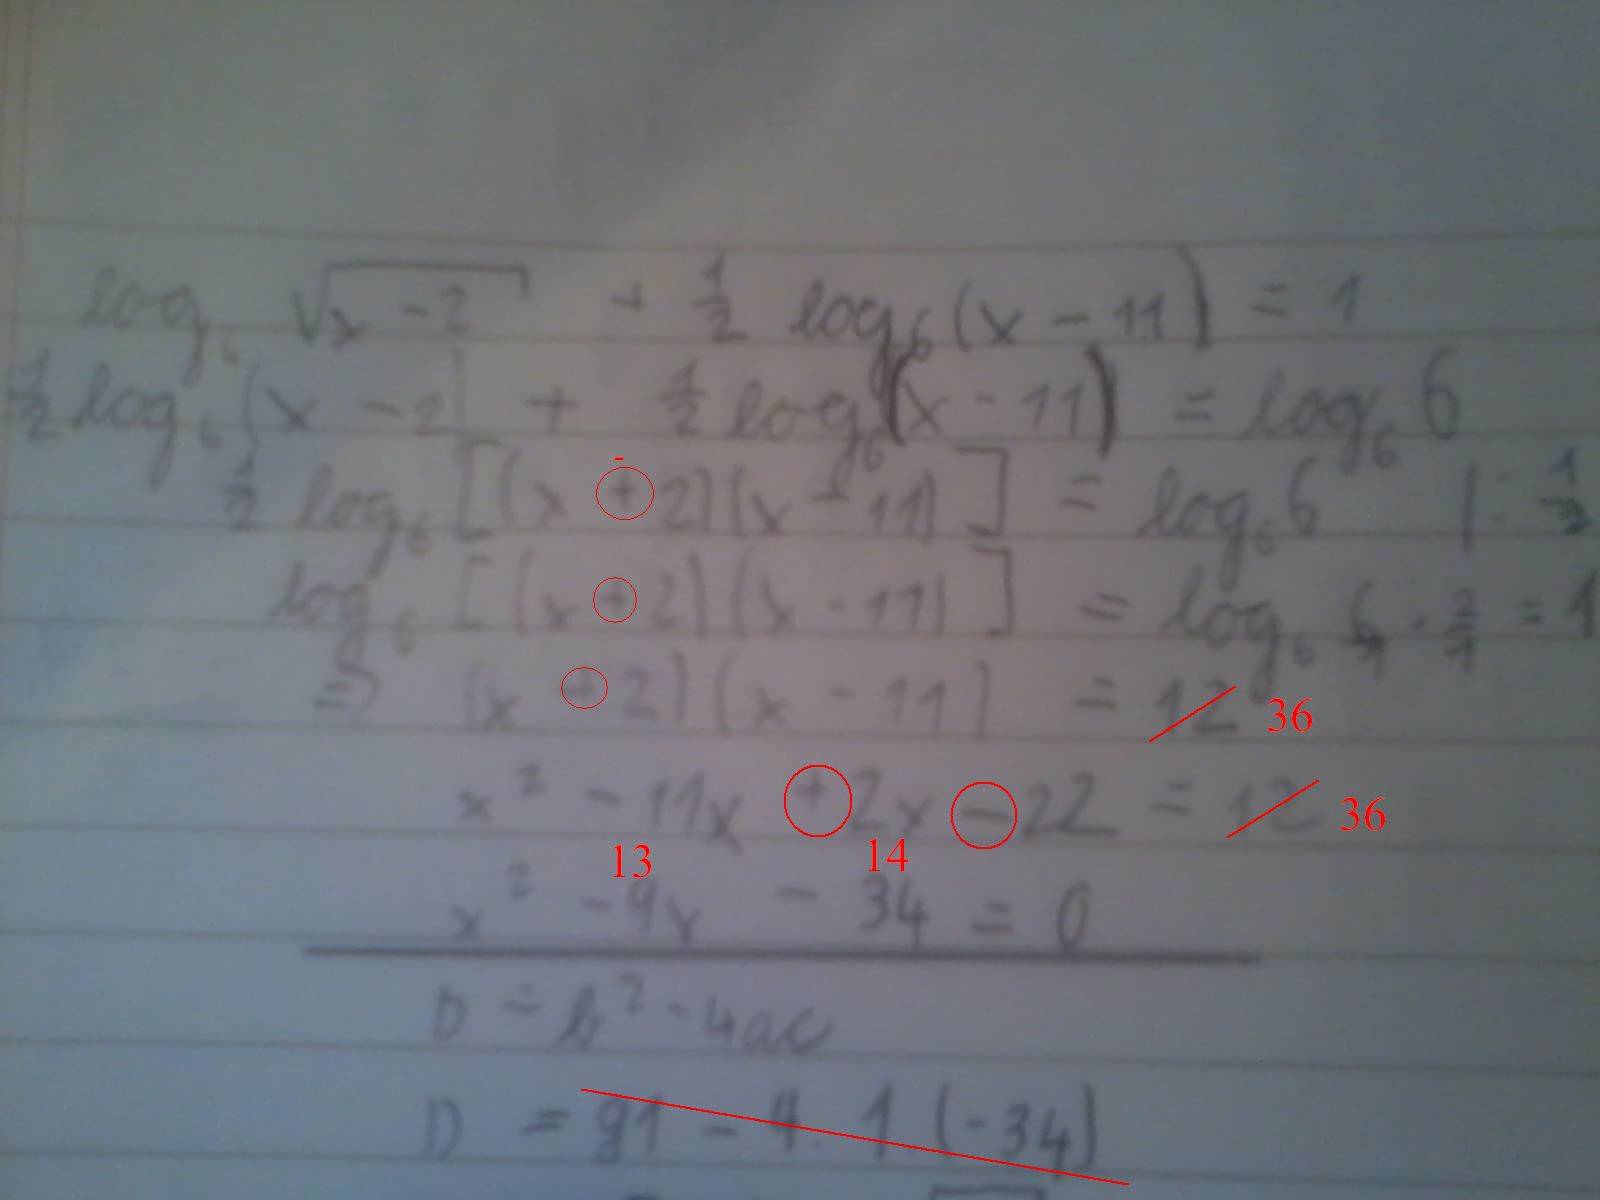 log₆ √x - 2 + 1/2 log₆(x - 11) = 1
1/2 log₆(x - 2) + 1/2 log₆(x - 11) = log₆ 6
-
1/2 log₆ [(x + 2)(x - 11)] = log₆ 6 | : 1/2
log₆ [(x + 2)(x - 11)] = log₆ 6 · 2/1 = 1
=> (x + 2)(x - 11) = 12 36
x² - 11x + 2x - 22 = 12 36
13 14
x² - 9x - 34 = 0
D = b² - 4ac
D = 81 - 4 · 1 (-34)